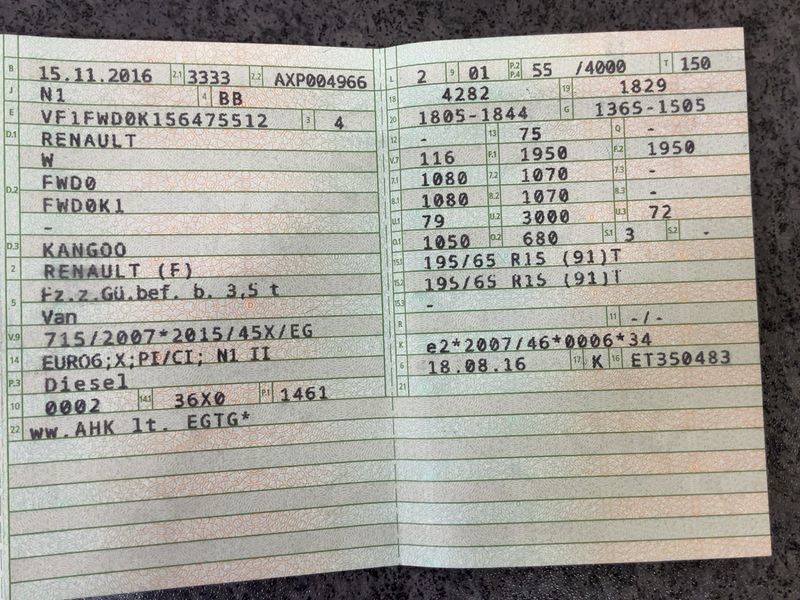 B 15.11.2016 2.1 3333 2.2 AXP004966
J N1 4 BB
E VF1FWD0K156475512 3 4
D.1 RENAULT
W
FWD0
D.2 FWD0K1
-
D.3 KANGOO
2 RENAULT (F)
5 Fz.z.Gü.bef. b. 3,5 t
Van
V.9 715/2007*2015/45X/EG
14 EURO6;X;PI/CI; N1 II
P.3 Diesel
10 0002 14.1 36X0 P.1 1461
22 ww.AHK lt. EGTG*
L 2 9 01 P.2 P.4 55 /4000 T 150
18 4282 19 1829
20 1805-1844 G 1365-1505
12 - 13 75 Q -
V.7 116 F.1 1950 F.2 1950
7.1 1080 7.2 1070 7.3 -
8.1 1080 8.2 1070 8.3 -
U.1 79 U.2 3000 U.3 72
O.1 1050 O.2 680 S.1 3 S.2 -
15.1 195/65 R15 (91)T
15.2 195/65 R15 (91)T
15.3 -
R 11 -/-
K e2*2007/46*0006*34
6 18.08.16 17 K 16 ET350483
21